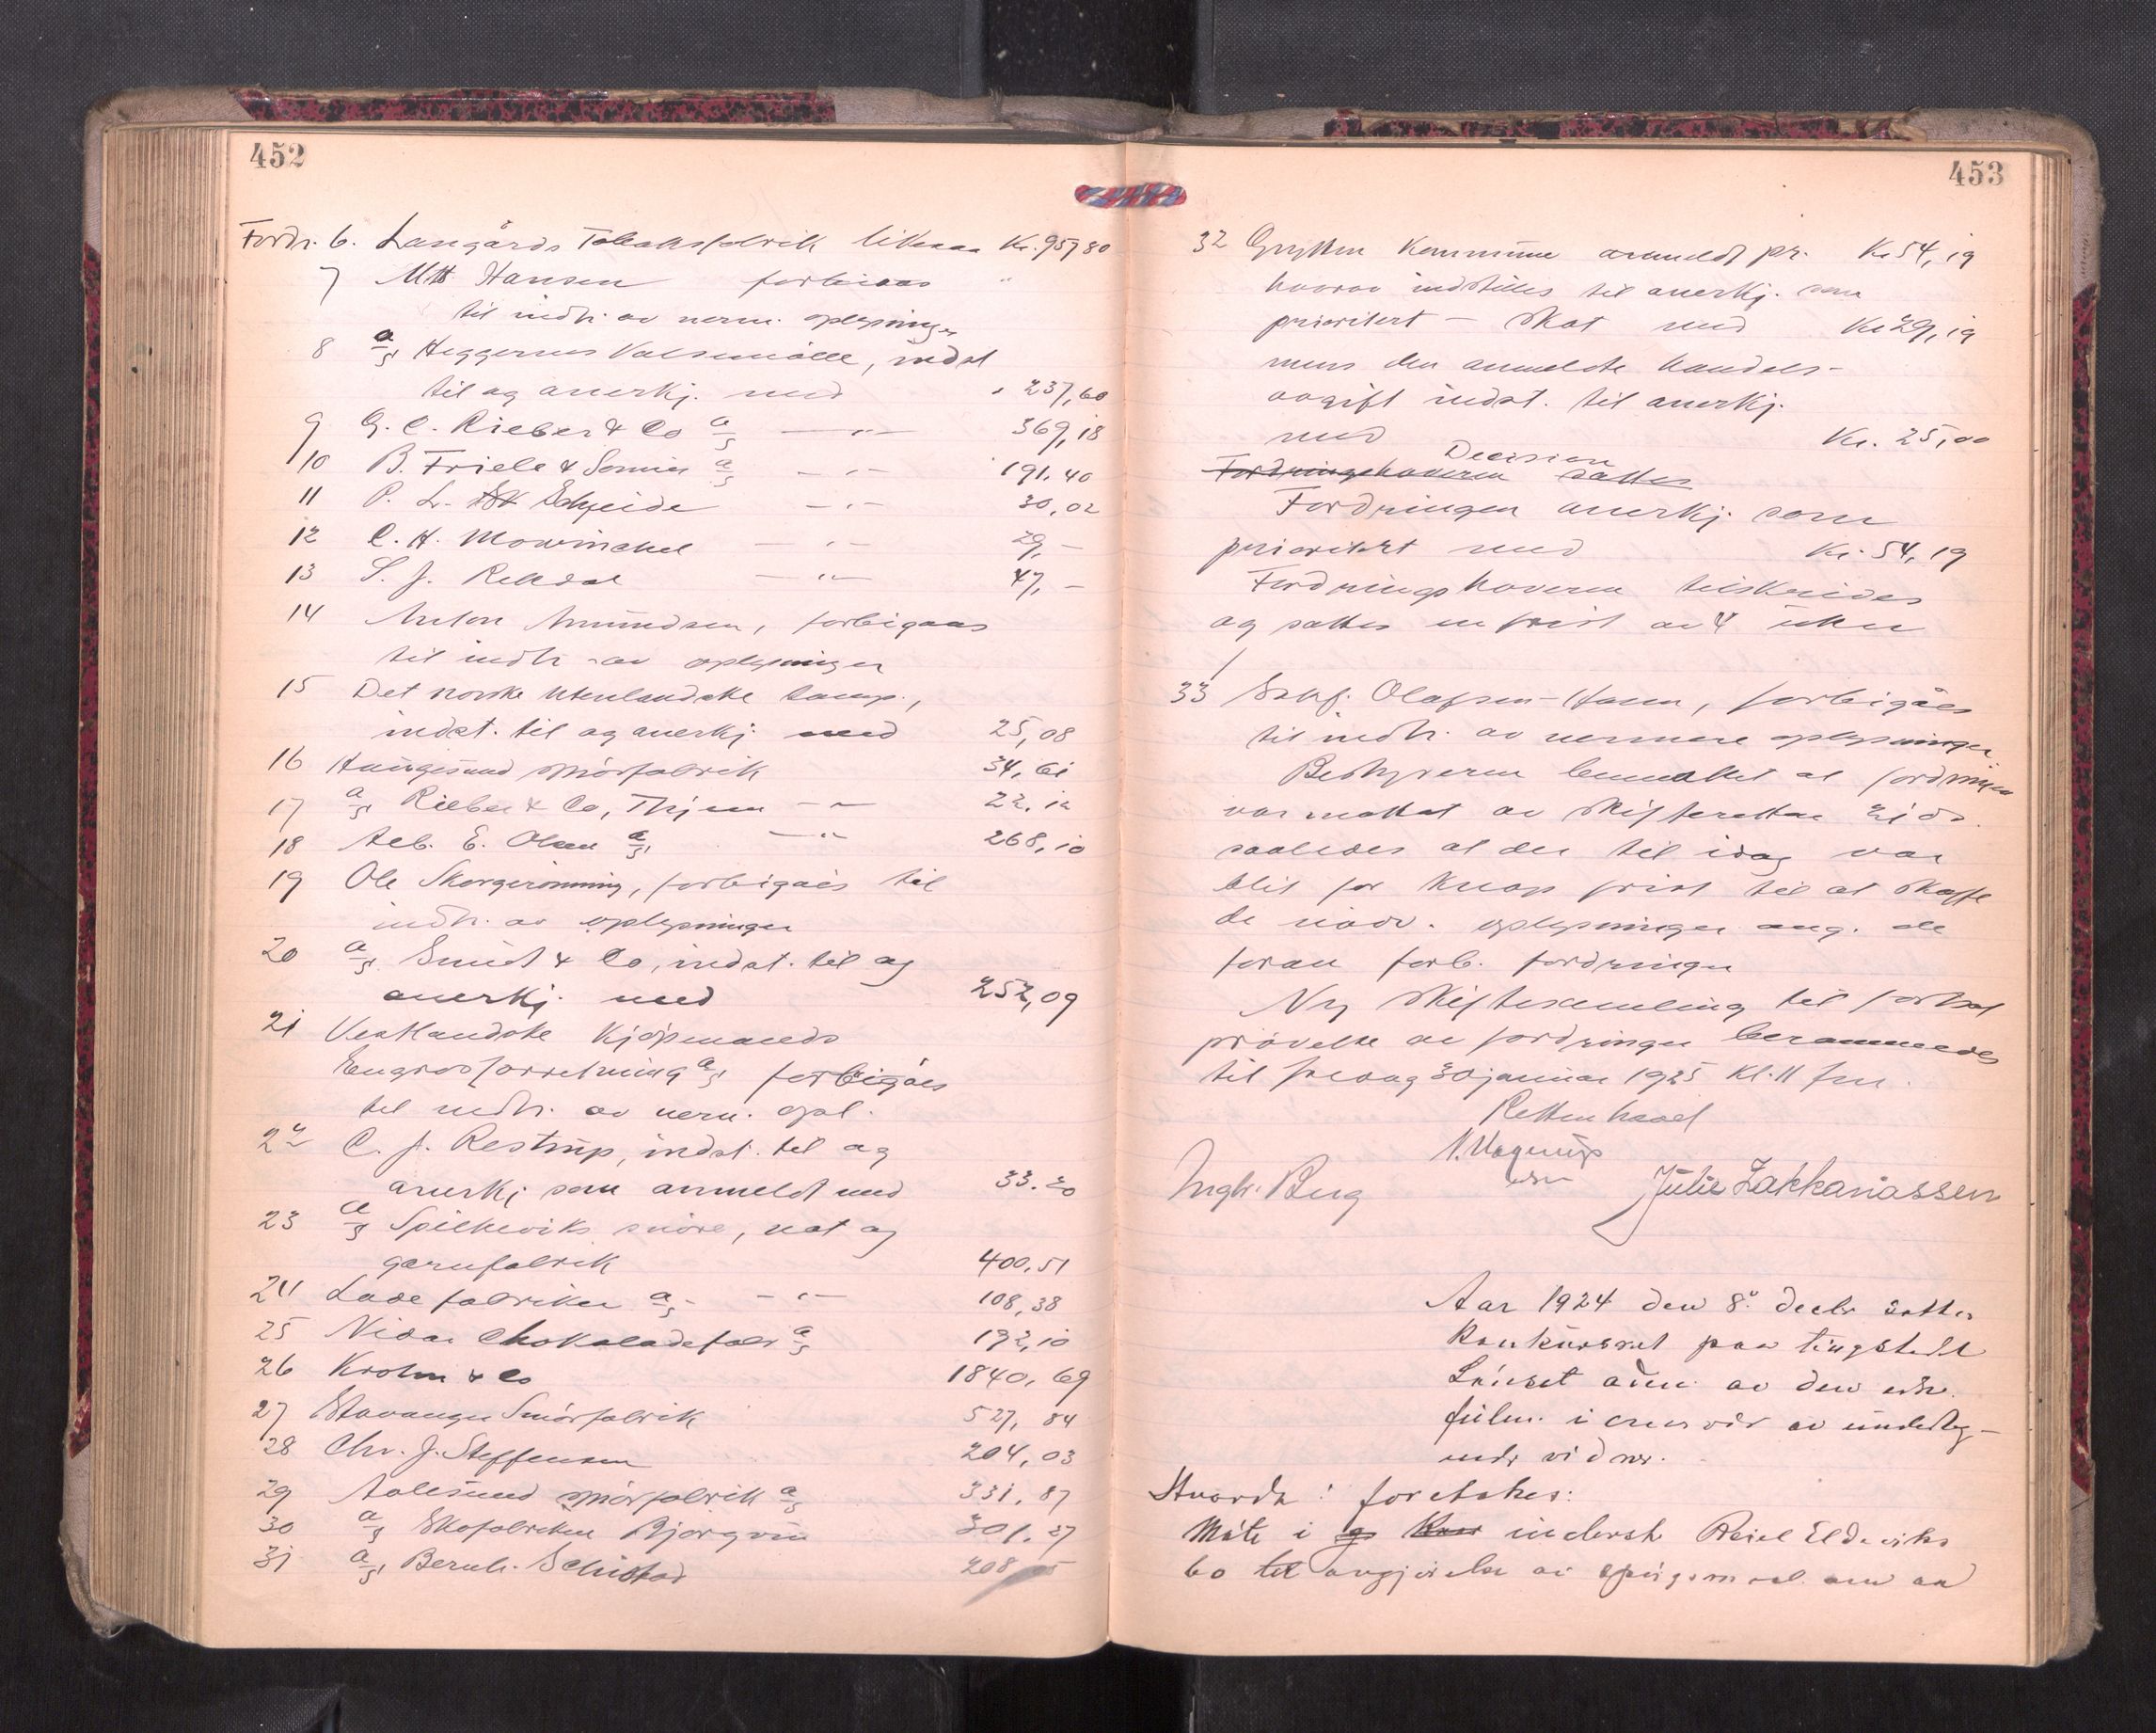 452
Fordr. 6. Langårds Tobaksfabrik likesaa Kr. 957 80
7 Mtt Hansen forbigaas "
til indh. av nerm. oplysninger
8 a/s Heggernes Valsemölle, indst
til og anerkj. med " 237,60
9 G. C. Rieber & Co a/s —"— 369,18
10 B. Friele & Sönner a/s —"— 191.40
11 P. L. Scheide —"— 30,02
12 C. H. Mowinckel —"— 29,-
13 S. J. Rekdal —"— 47,-
14 Anton Amundsen, forbigaas
til indh. av oplysninger
15 Det norske Utenlandske komp.,
indst. til og anerkj. med 25,08
16 Haugesund smörfabrik 34,61
17 a/s Rieber & Co, Thjem —"— 22.12
18 Aeb. E. Olsen a/s —"— 268,10
19 Ole Skorgerönning, forbigaaes til
indh. av oplysninger
20 a/s Smidt & Co, indst. til og
anerkj. med 252,09
21 Vestlandske Kjöpmænds
Engrosforretning a/s forbigåes
til indh. av nerm. opl.
22 C. J. Restrup, indst. til og
anerkj som anmeldt med 33.20
23 a/s Spilkeviks snöre, not og
garnfabrik 400.51
24 Lade fabrikker a/s —"— 108,38
25 Nidar Chokoladefabr a/s 192,10
26 Krohn & Co 1840,69
27 Stavanger Smörfabrik 527,84
28 Chr. J. Steffensen 204,03
29 Aalesund smörfabrik a/s 331.87
30 a/s Skofabriken Björgvin 301.27
31 a/s Bernh. Schistad 208
453
32 Grytten Kommune anmeldt pr. Kr 54,19
hvorav indstilles til anerkj. som
prioritert - skat med Kr 29,19
mens den anmeldte handels-
avgift indst. til anerkj.
med Kr. 25,00
Decision
Fordringshaveren sattes
Fordringen anerkj. som
prioritert med Kr. 54,19
Fordringshaveren tilskrives
og sattes en frist av 4 uker
33 Sakf. Olafsen-Holm, forbigåes
til indh. av nermere oplysninger
Bestyreren bemerket at fordringen
var mottat av skifteretten 21 ds.
saaledes at der til idag var
blit for knap frist til at skaffe
de nödv. oplysninger ang. de
foran forb. fordringer
Ny skiftesamling til fortsat
prövelse av fordringer berammedes
til fredag 30 januar 1925 kl. 11 fm.
Retten hævet
Ingbr. Berg Julie Zakkariassen
Aar 1924 den 8de decbr sattes
Konkursret paa tingstedet
adm. av den edsv.
fulm. i av undertegnede
vidner.
Hvorda: foretokes:
Möte i indersk Reiel Eldeviks
bo til avgjörelse av spörgsmaal om an